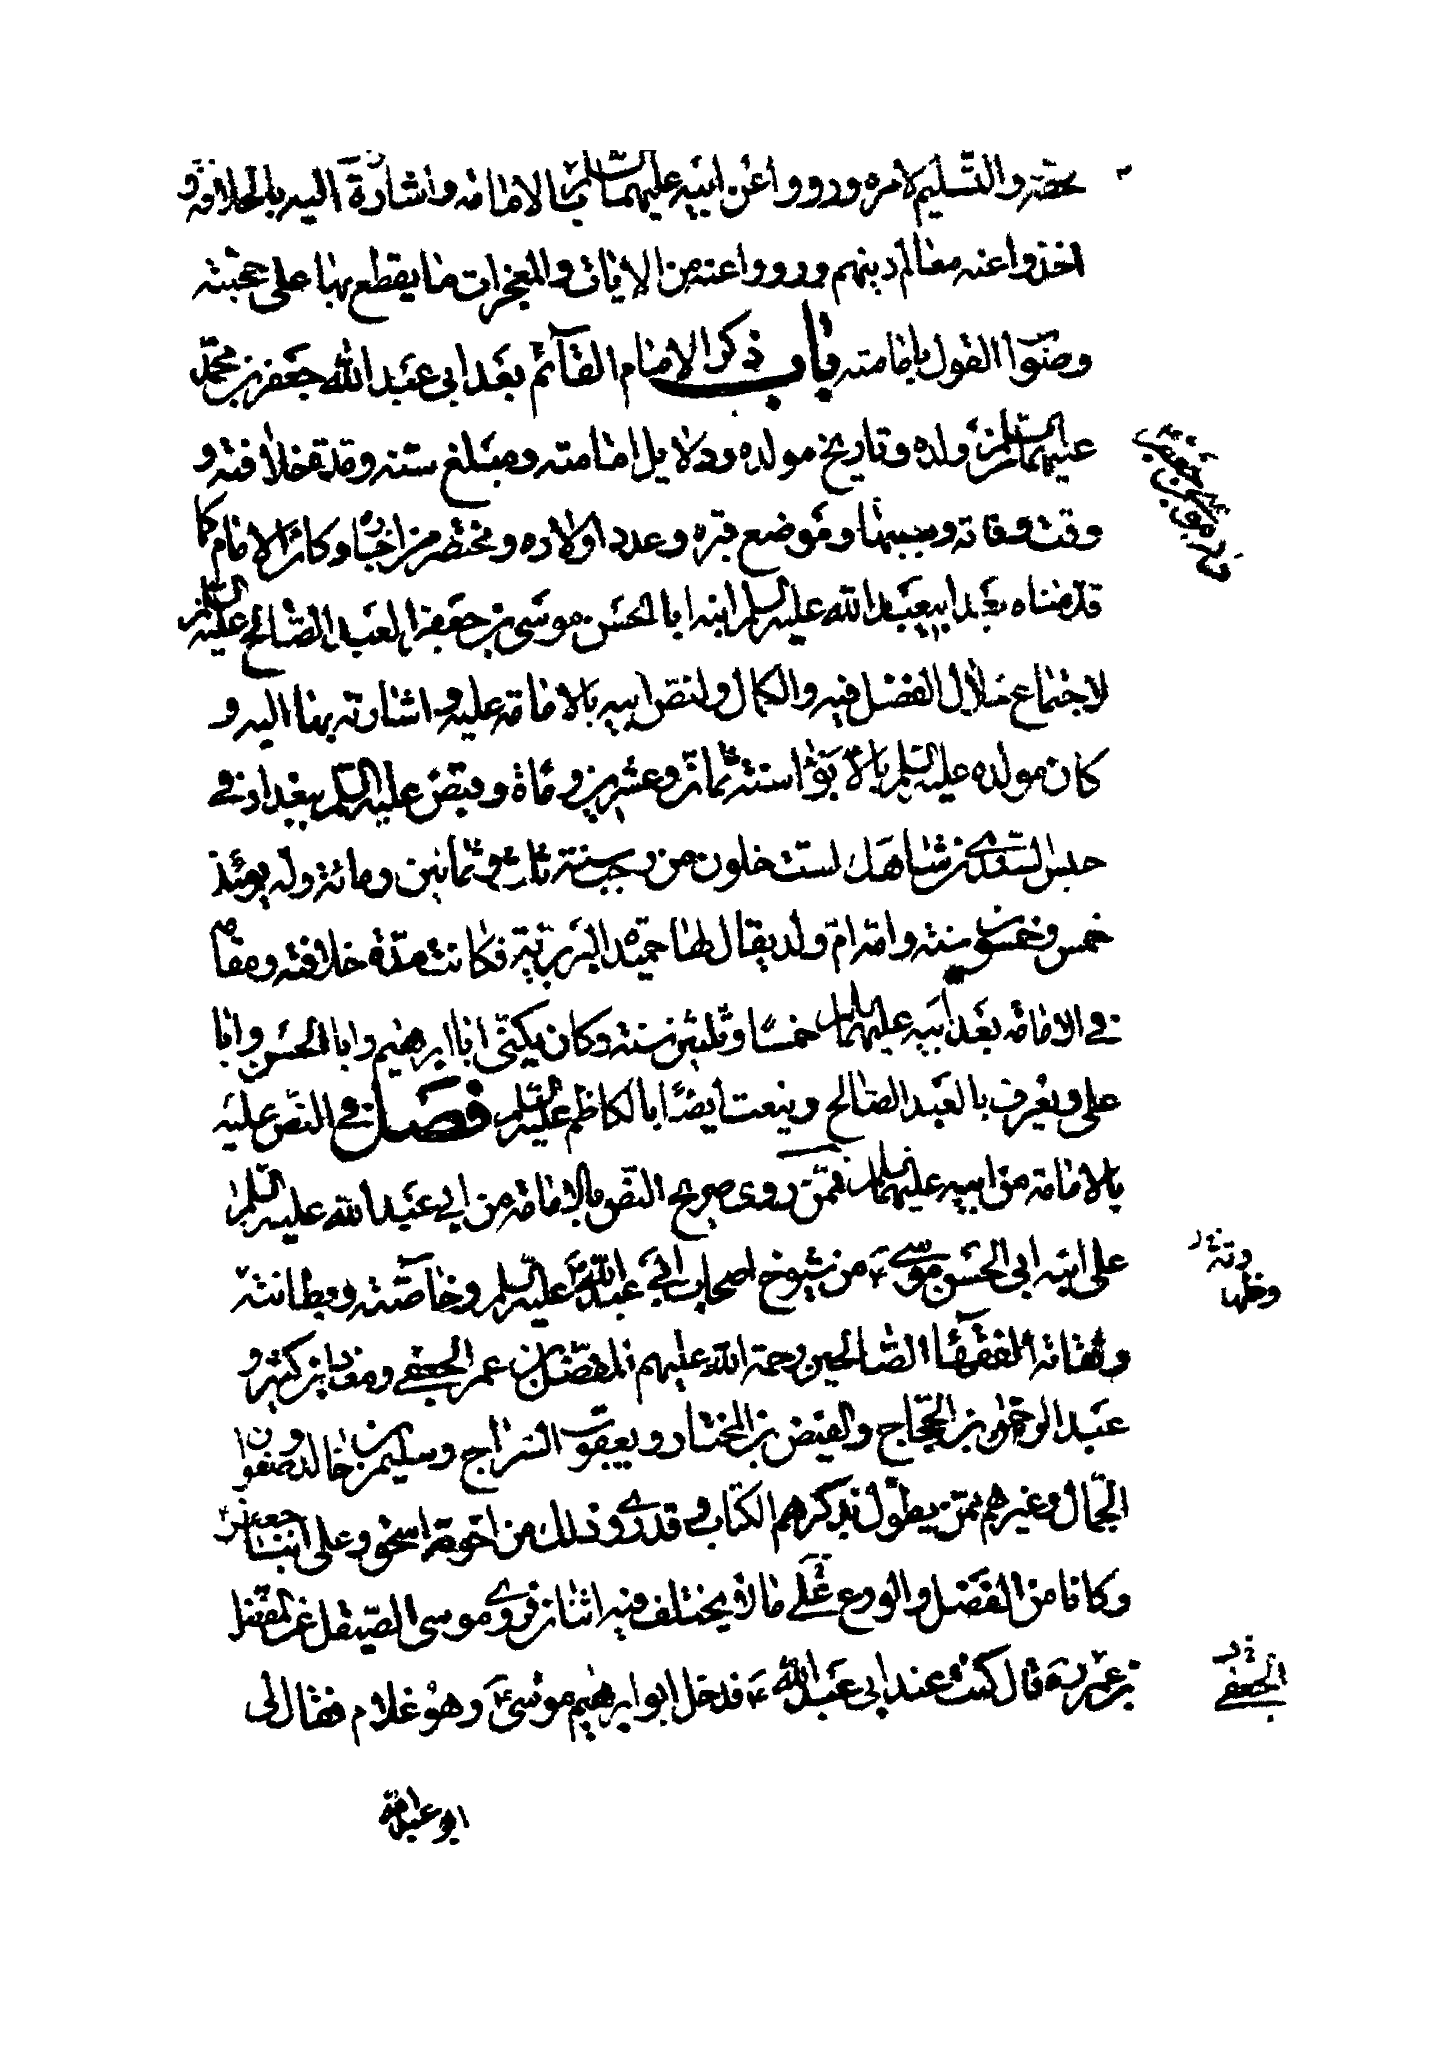 بحقه والتسليم لامره ورووا عن ابيه عليهما السلم بالامامة واشارة اليه بالخلافة و
اخذوا عنه معالم دينهم ورووا عنه من الايات والمعجزات ما يقطع بها على حجيته
وصوا القول بامامته باب ذكر الامام القائم بعد ابي عبد الله جعفر بن محمد
عليهما السلم من ولده وتاريخ مولده ودلايل امامته ومبلغ سنه ومدة خلافته و
وقت وفاته وسببها وموضع قبره وعدد اولاده ومختصر من اخباره وكان الامام كما
قدمناه بعد ابيعبد الله عليه السلم ابنه ابا الحسن موسى بن جعفر العبد الصالح عليه السلم
لاجتماع خلال الفضل فيه والكمال ولنص ابيه بالامامة عليه واشارته بها اليه و
كان مولده عليه السلم بالابوا سنة ثمان وعشرين ومأة وقبض عليه السلم ببغداد في
حبس السندي بن شاهك لست خلون من رجب سنة ثلث وثمانين ومائة وله يومئذ
خمس وخمسون سنة وامه ام ولد يقال لها حميدة البربرية فكانت مدة خلافته ومقامه
في الامامة بعد ابيه عليهما السلم خمسا وثلثين سنة وكان يكنى ابا ابرهيم وابا الحسن وابا
على ويعرف بالعبد الصالح وينعت ايضا بالكاظم عليه السلم فصل في النص عليه
بالامامة من ابيه عليهما السلم فممن روى صريح النص بالامامة من ابي عبد الله عليه السلم
على ابنه ابى الحسن موسى ع من شيوخ اصحاب ابي عبد الله عليه السلم وخاصته وبطانته
وثقاته الفقهاء الصالحين رحمة الله عليهم المفضل بن عمر الجعفي ومعاذ بن كثير و
عبد الرحمن بن الحجاج والفيض بن المختار ويعقوب السراج وسليمن بن خالد وصفوان
الجمال وغيرهم ممن يطول بذكرهم الكتاب وقد روى ذلك من اخوته اسحق وعلى ابنا جعفر
وكانا من الفضل والورع على ما لا يختلف فيه اثنان فروى موسى الصيقل عن المفضل
بن عمر ره قال كنت عند ابي عبد الله ع فدخل ابو ابرهيم موسى ع وهو غلام فقال لى
الجعفي
ابو عبد الله